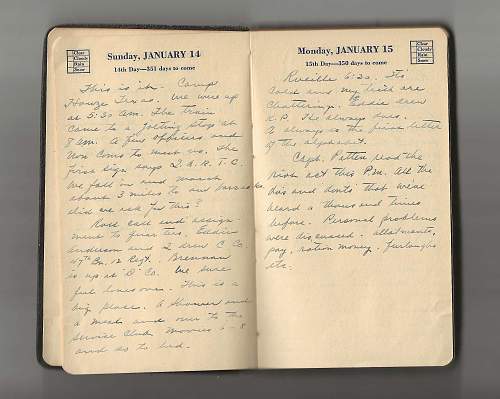 Clear
Cloudy
Rain
Snow
Sunday, JANUARY 14
14th Day—351 days to come
This is it. Camp
Howze Texas. We were up
at 5:30 am. The train
came to a jolting stop at
8 am. A few officers and
Non Coms to meet us. The
first sign says I.A.R.T.C.
We fall in and march
about 3 miles to our barracks
did we ask for this?
Roll call and assign-
ment to quarters. Eddie
Anderson and I drew C Co.
47th Bn. 12 Regt. Brennan
is up at "B" Co. We sure
feel lonesome. This is a
big place. A shower and
a meal and over to the
Service Club. Movies 6-8
and so to bed.
Clear
Cloudy
Rain
Snow
Monday, JANUARY 15
15th Day—350 days to come
Reveille 6:30. It's
cold and my teeth are
chattering. Eddie drew
K.P. He always does.
A always is the first letter
of the alphabet.
Capt. Patten read the
riot act this P.M. All the
do's and donts that we've
heard a thousand times
before. Personal problems
were discussed. allotments,
pay, ration money, furloughs
etc.